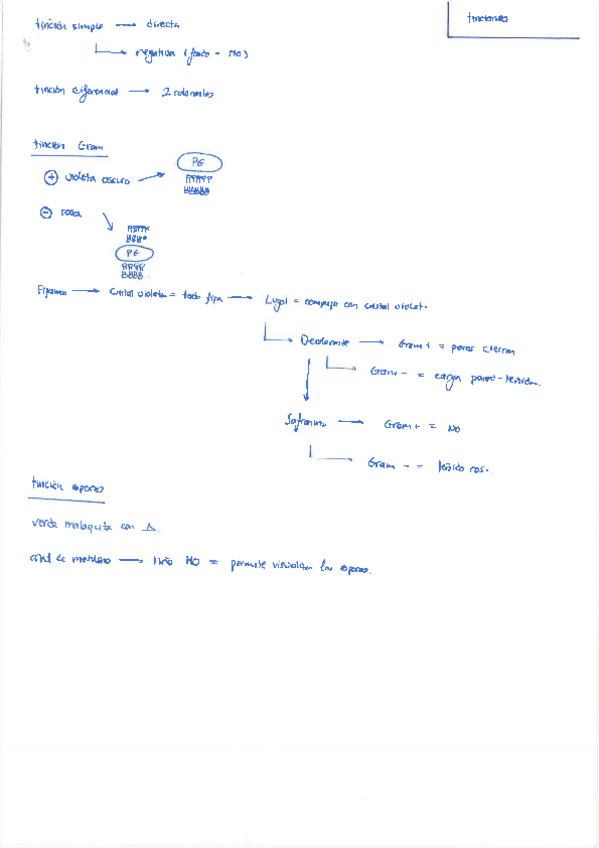 tinciones
tinción simple → directa
→ negativa (fondo - MO)
tinción diferencial → 2 colorantes
tinción Gram
PG
+ violeta oscuro
- rosa
PG
Fijamos → cristal violeta = todo → Lugol = complejo con cristal violet.
→ Decolorante → Gram + = poros cierran
→ Gram - = pared
→ Gram + = NO
→ Gram - = teñido ros.
tinción esporas
verde malaquita con Δ.
→ MO = permite visualizar las esporas.